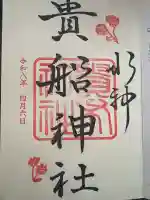 水神
貴船神社
令和八年 四月六日